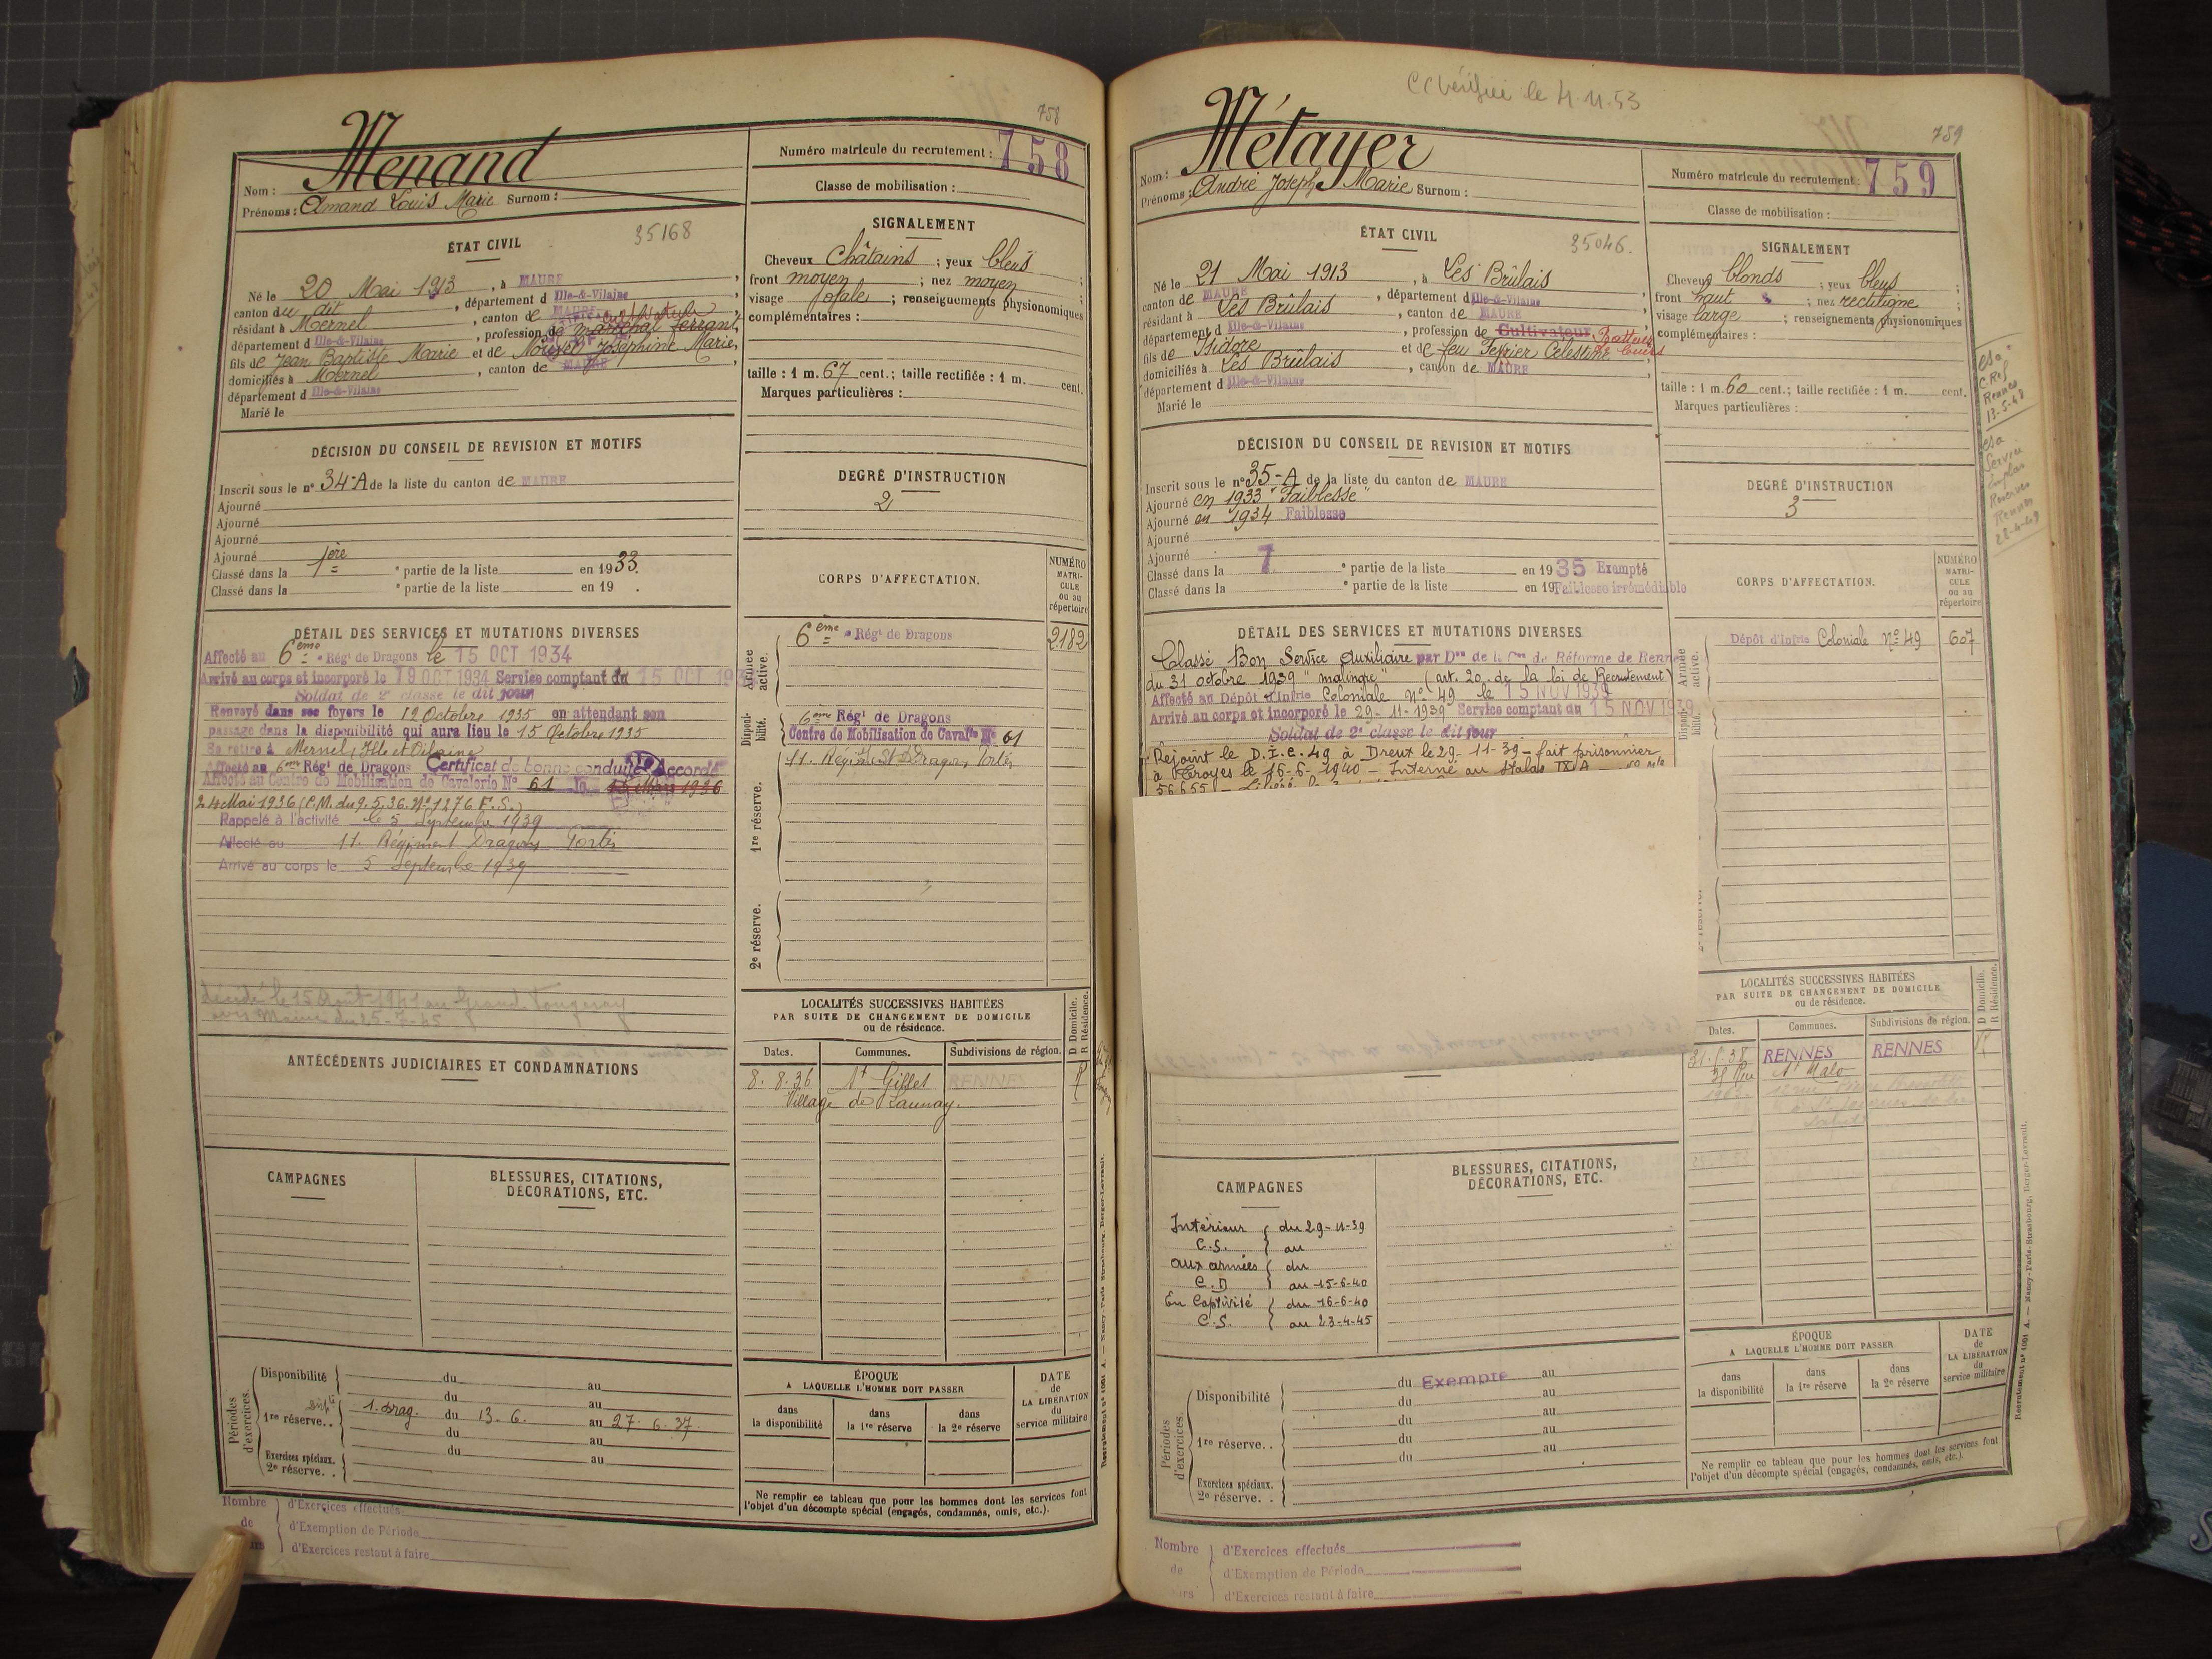 758
Menand
Nom :
Prénoms : Amand Louis Marie Surnom :
Numéro matricule du recrutement : 758
Classe de mobilisation :
ÉTAT CIVIL
35168
Né le 20 Mai 1913, à MAURE,
canton du dit, département d Ille-&-Vilaine,
résidant à Mernel, canton de MAURE
département d Ille-&-Vilaine, profession de maréchal ferrant, cultivateur
fils de Jean Baptiste Marie et de Noüvel Joséphine Marie,
domiciliés à Mernel, canton de MAURE
département d Ille-&-Vilaine
Marié le
SIGNALEMENT
Cheveux Châtains ; yeux bleus ;
front moyen ; nez moyen ;
visage ovale ; renseignements physionomiques
complémentaires :
taille : 1 m. 67 cent.; taille rectifiée : 1 m. cent.
Marques particulières :
DÉCISION DU CONSEIL DE REVISION ET MOTIFS
Inscrit sous le n° 34-A de la liste du canton de MAURE
Ajourné
Ajourné
Ajourné
Ajourné
Classé dans la 1ère partie de la liste en 1933.
Classé dans la ᵉ partie de la liste en 19 .
DEGRÉ D'INSTRUCTION
2
DÉTAIL DES SERVICES ET MUTATIONS DIVERSES
Affecté au 6ème Régt de Dragons le 15 OCT 1934
Arrivé au corps et incorporé le 19 OCT 1934 Service comptant du 15 OCT 193
Soldat de 2e classe le dit jour
Renvoyé dans ses foyers le 12 Octobre 1935 en attendant son
passage dans la disponibilité qui aura lieu le 15 Octobre 1935
Se retire à Mernel, Ille et Vilaine
Affecté au 6em Régt de Dragons Certificat de bonne conduite Accordé
Affecté au Centre de Mobilisation de Cavalerie N° 61 le
24 Mai 1936 (C.M. du 9.5.36. N° 1276 E.S.)
Rappelé à l'activité le 5 Septembre 1939
Affecté au 11. Régiment Dragons Portés
Arrivé au corps le 5 Septembre 1939
décédé le 15 Août 1941 au Grand
avis Mairie du 25-7-45
CORPS D'AFFECTATION.
NUMÉRO MATRICULE ou au répertoire
Armée active.
6ème Régt de Dragons 2182
Disponibilité.
6em Régt de Dragons
Centre de Mobilisation de Cavalie N° 61
1re réserve.
11. Régiment Dragons Portés
2e réserve.
LOCALITÉS SUCCESSIVES HABITÉES
PAR SUITE DE CHANGEMENT DE DOMICILE
ou de résidence.
D Domicile.
R Résidence.
Dates. Communes. Subdivisions de région.
8. 8. 36 St Gilles RENNES R
Village de Launay.
ANTÉCÉDENTS JUDICIAIRES ET CONDAMNATIONS
CAMPAGNES
BLESSURES, CITATIONS,
DÉCORATIONS, ETC.
Périodes d'exercices.
Disponibilité du au
du au
1re réserve. . 1. Drag. du 13. 6. au 27. 6. 37.
du au
du au
Exercices spéciaux.
2e réserve. .
ÉPOQUE
A LAQUELLE L'HOMME DOIT PASSER
dans la disponibilité
dans la 1re réserve
dans la 2e réserve
DATE de LA LIBÉRATION du service militaire
Ne remplir ce tableau que pour les hommes dont les services font
l'objet d'un décompte spécial (engagés, condamnés, omis, etc.).
Nombre d'Exercices effectués
de d'Exemption de Période
d'Exercices restant à faire
Recrutement n° 1001 A. — Nancy-Paris-Strasbourg, Berger-Levrault.
CC Vérifiée le 4.11.53
759
Métayer
Nom :
Prénoms : André Joseph Marie Surnom :
Numéro matricule du recrutement : 759
Classe de mobilisation :
ÉTAT CIVIL
35046.
Né le 21 Mai 1913, à Les Brûlais
canton de MAURE, département d Ille-&-Vilaine
résidant à Les Brûlais, canton de MAURE
département d Ille-&-Vilaine, profession de Cultivateur Batteur de cuirs
fils de Isidore et de feu Fevrier Célestine
domiciliés à Les Brûlais, canton de MAURE
département d Ille-&-Vilaine
Marié le
SIGNALEMENT
Cheveux blonds ; yeux bleus ;
front haut ; nez rectiligne ;
visage large ; renseignements physionomiques
complémentaires :
taille : 1 m. 60 cent.; taille rectifiée : 1 m. cent.
Marques particulières :
C.Ref
Rennes
13-5-48
Service
Rennes
DÉCISION DU CONSEIL DE REVISION ET MOTIFS
Inscrit sous le n° 35-A de la liste du canton de MAURE
Ajourné en 1933 "Faiblesse"
Ajourné en 1934 Faiblesse
Ajourné
Ajourné
Classé dans la 7 ᵉ partie de la liste en 1935 Exempté
Classé dans la ᵉ partie de la liste en 19 Faiblesse irrémédiable
DEGRÉ D'INSTRUCTION
3
DÉTAIL DES SERVICES ET MUTATIONS DIVERSES
Classé Bon Service Auxiliaire par Don de la Con de Réforme de Rennes
du 31 octobre 1939 "malingre" (art. 20 de la loi de Recrutement)
Affecté au Dépôt d'Infrie Coloniale N° 49 le 15 NOV 1939
Arrivé au corps et incorporé le 29-11-1939 Service comptant du 15 NOV 1939
Soldat de 2e classe le dit jour
Rejoint le D.I.C. 49 à Dreux le 29-11-39 - fait prisonnier
à Troyes le 16-6-1940 - Interné au Stalag IX A - No Mle
56655 - Libéré le
CORPS D'AFFECTATION.
NUMÉRO MATRICULE ou au répertoire
Armée active.
Dépôt d'Infrie Coloniale N° 49 607
Disponibilité.
LOCALITÉS SUCCESSIVES HABITÉES
PAR SUITE DE CHANGEMENT DE DOMICILE
ou de résidence.
D Domicile.
R Résidence.
Dates. Communes. Subdivisions de région.
RENNES RENNES R
St Malo
CAMPAGNES
Intérieur du 29-11-39
C.S. au
aux armées du
C.D au 15-6-40
En Captivité du 16-6-40
C.S. au 23-4-45
BLESSURES, CITATIONS,
DÉCORATIONS, ETC.
Périodes d'exercices.
Disponibilité du Exempté au
du au
du au
1re réserve. . du au
du au
Exercices spéciaux.
2e réserve. .
ÉPOQUE
A LAQUELLE L'HOMME DOIT PASSER
dans la disponibilité
dans la 1re réserve
dans la 2e réserve
DATE de LA LIBÉRATION du service militaire
Ne remplir ce tableau que pour les hommes dont les services font
l'objet d'un décompte spécial (engagés, condamnés, omis, etc.).
Nombre d'Exercices effectués
de d'Exemption de Période
d'Exercices restant à faire
Recrutement n° 1001 A. — Nancy-Paris-Strasbourg, Berger-Levrault.